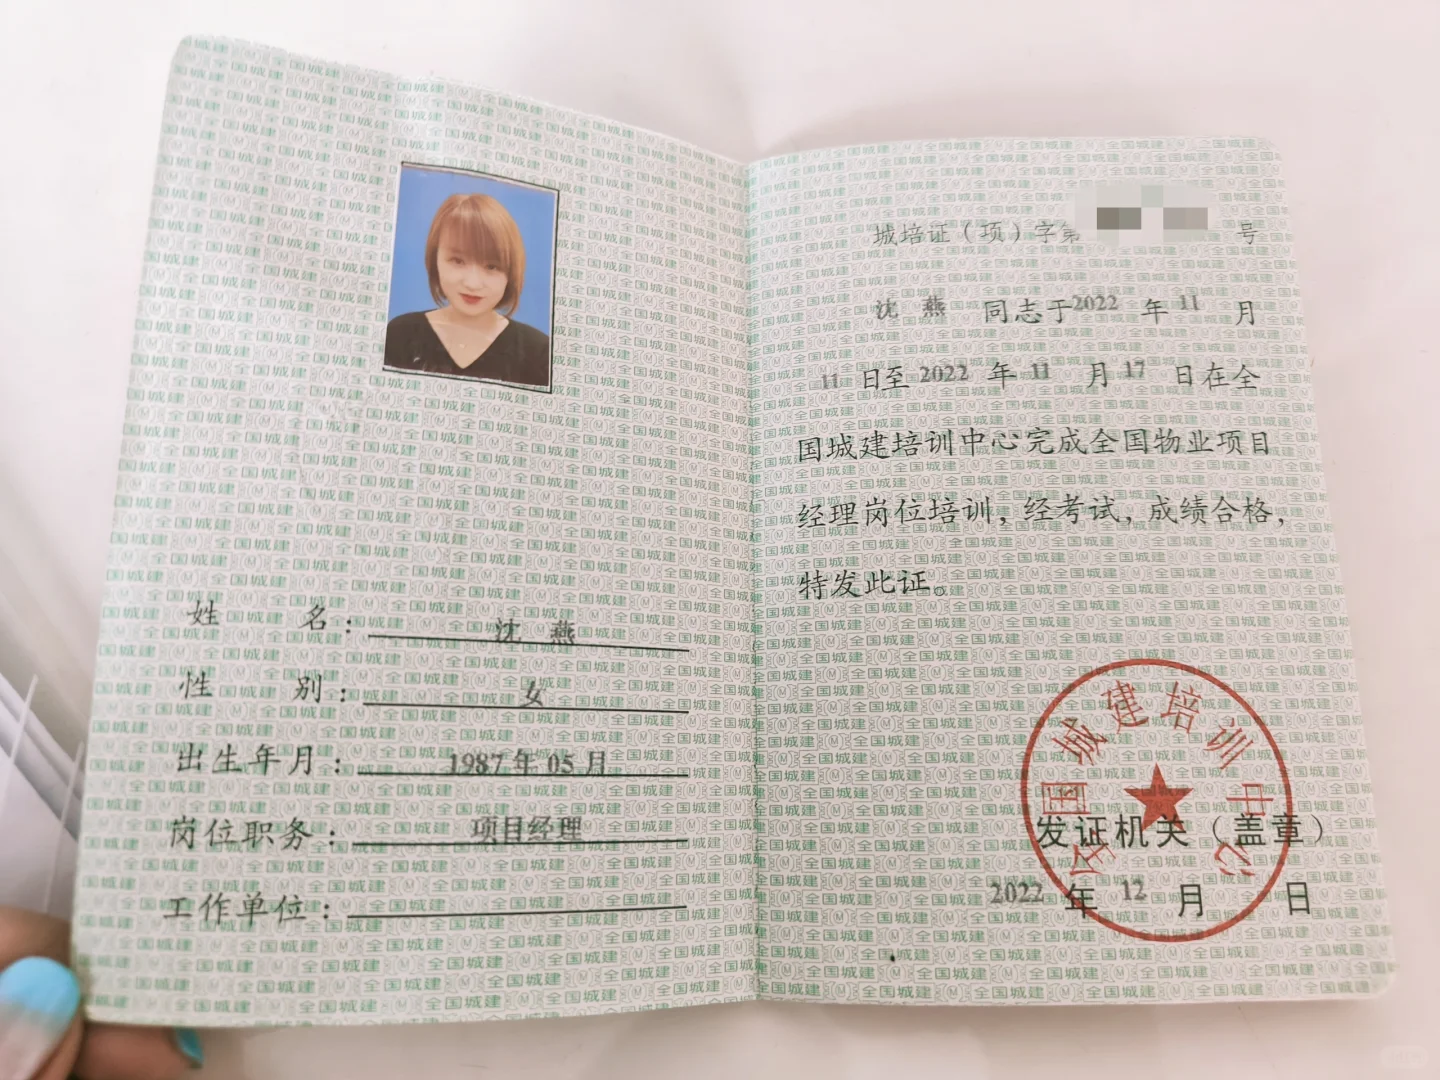 姓名：沈燕
性别：女
出生年月：1987年05月
岗位职务：项目经理
工作单位：
城培证（项）字第 号
沈燕 同志于2022年11月
11日至2022年11月17日在全
国城建培训中心完成全国物业项目
经理岗位培训，经考试，成绩合格，
特发此证。
全国城建培训中心
发证机关（盖章）
2022年12月 日
全国城建